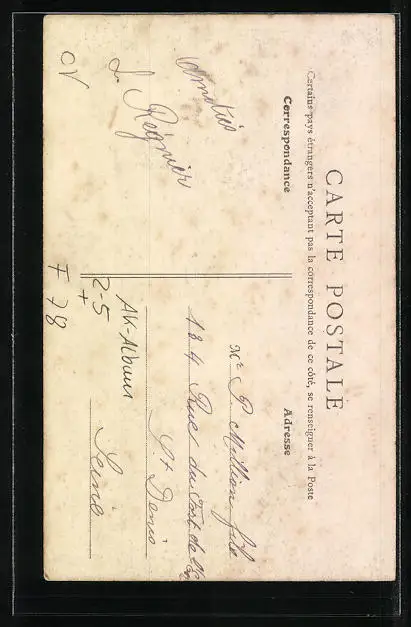 CARTE POSTALE
Certains pays étrangers n'acceptant pas la correspondance de ce côté, se renseigner à la Poste
Correspondance
Adresse
Amitiés
L. Régnier
Mr P. Million fils
134 Rue du Port
St Denis
Seine
AK-Album
2-5
+
CV
F 78